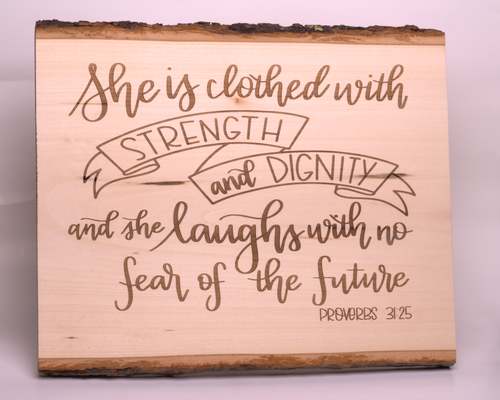 She is clothed with
STRENGTH
and DIGNITY
and she laughs with no
fear of the future
PROVERBS 31:25